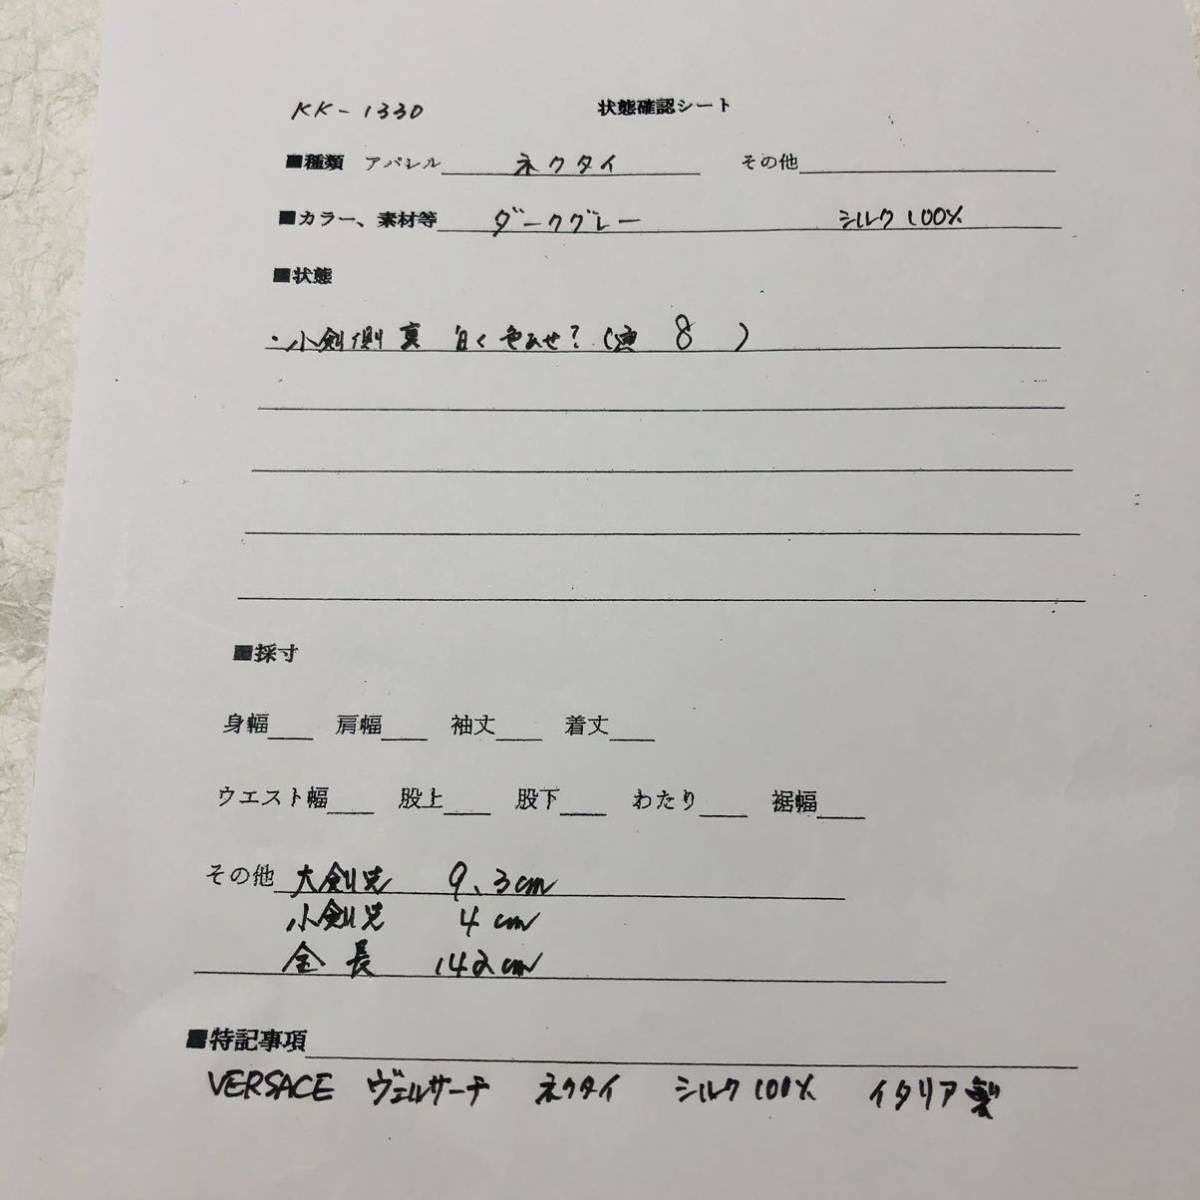 KK-1330 状態確認シート
■種類 アパレル ネクタイ その他
■カラー、素材等 ダークグレー シルク100%
■状態
・小剣側裏 白く色あせ?( 8 )
■採寸
身幅 肩幅 袖丈 着丈
ウエスト幅 股上 股下 わたり 裾幅
その他 大剣先 9.3cm
小剣先 4cm
全長 142cm
■特記事項
VERSACE ヴェルサーチ ネクタイ シルク100% イタリア製